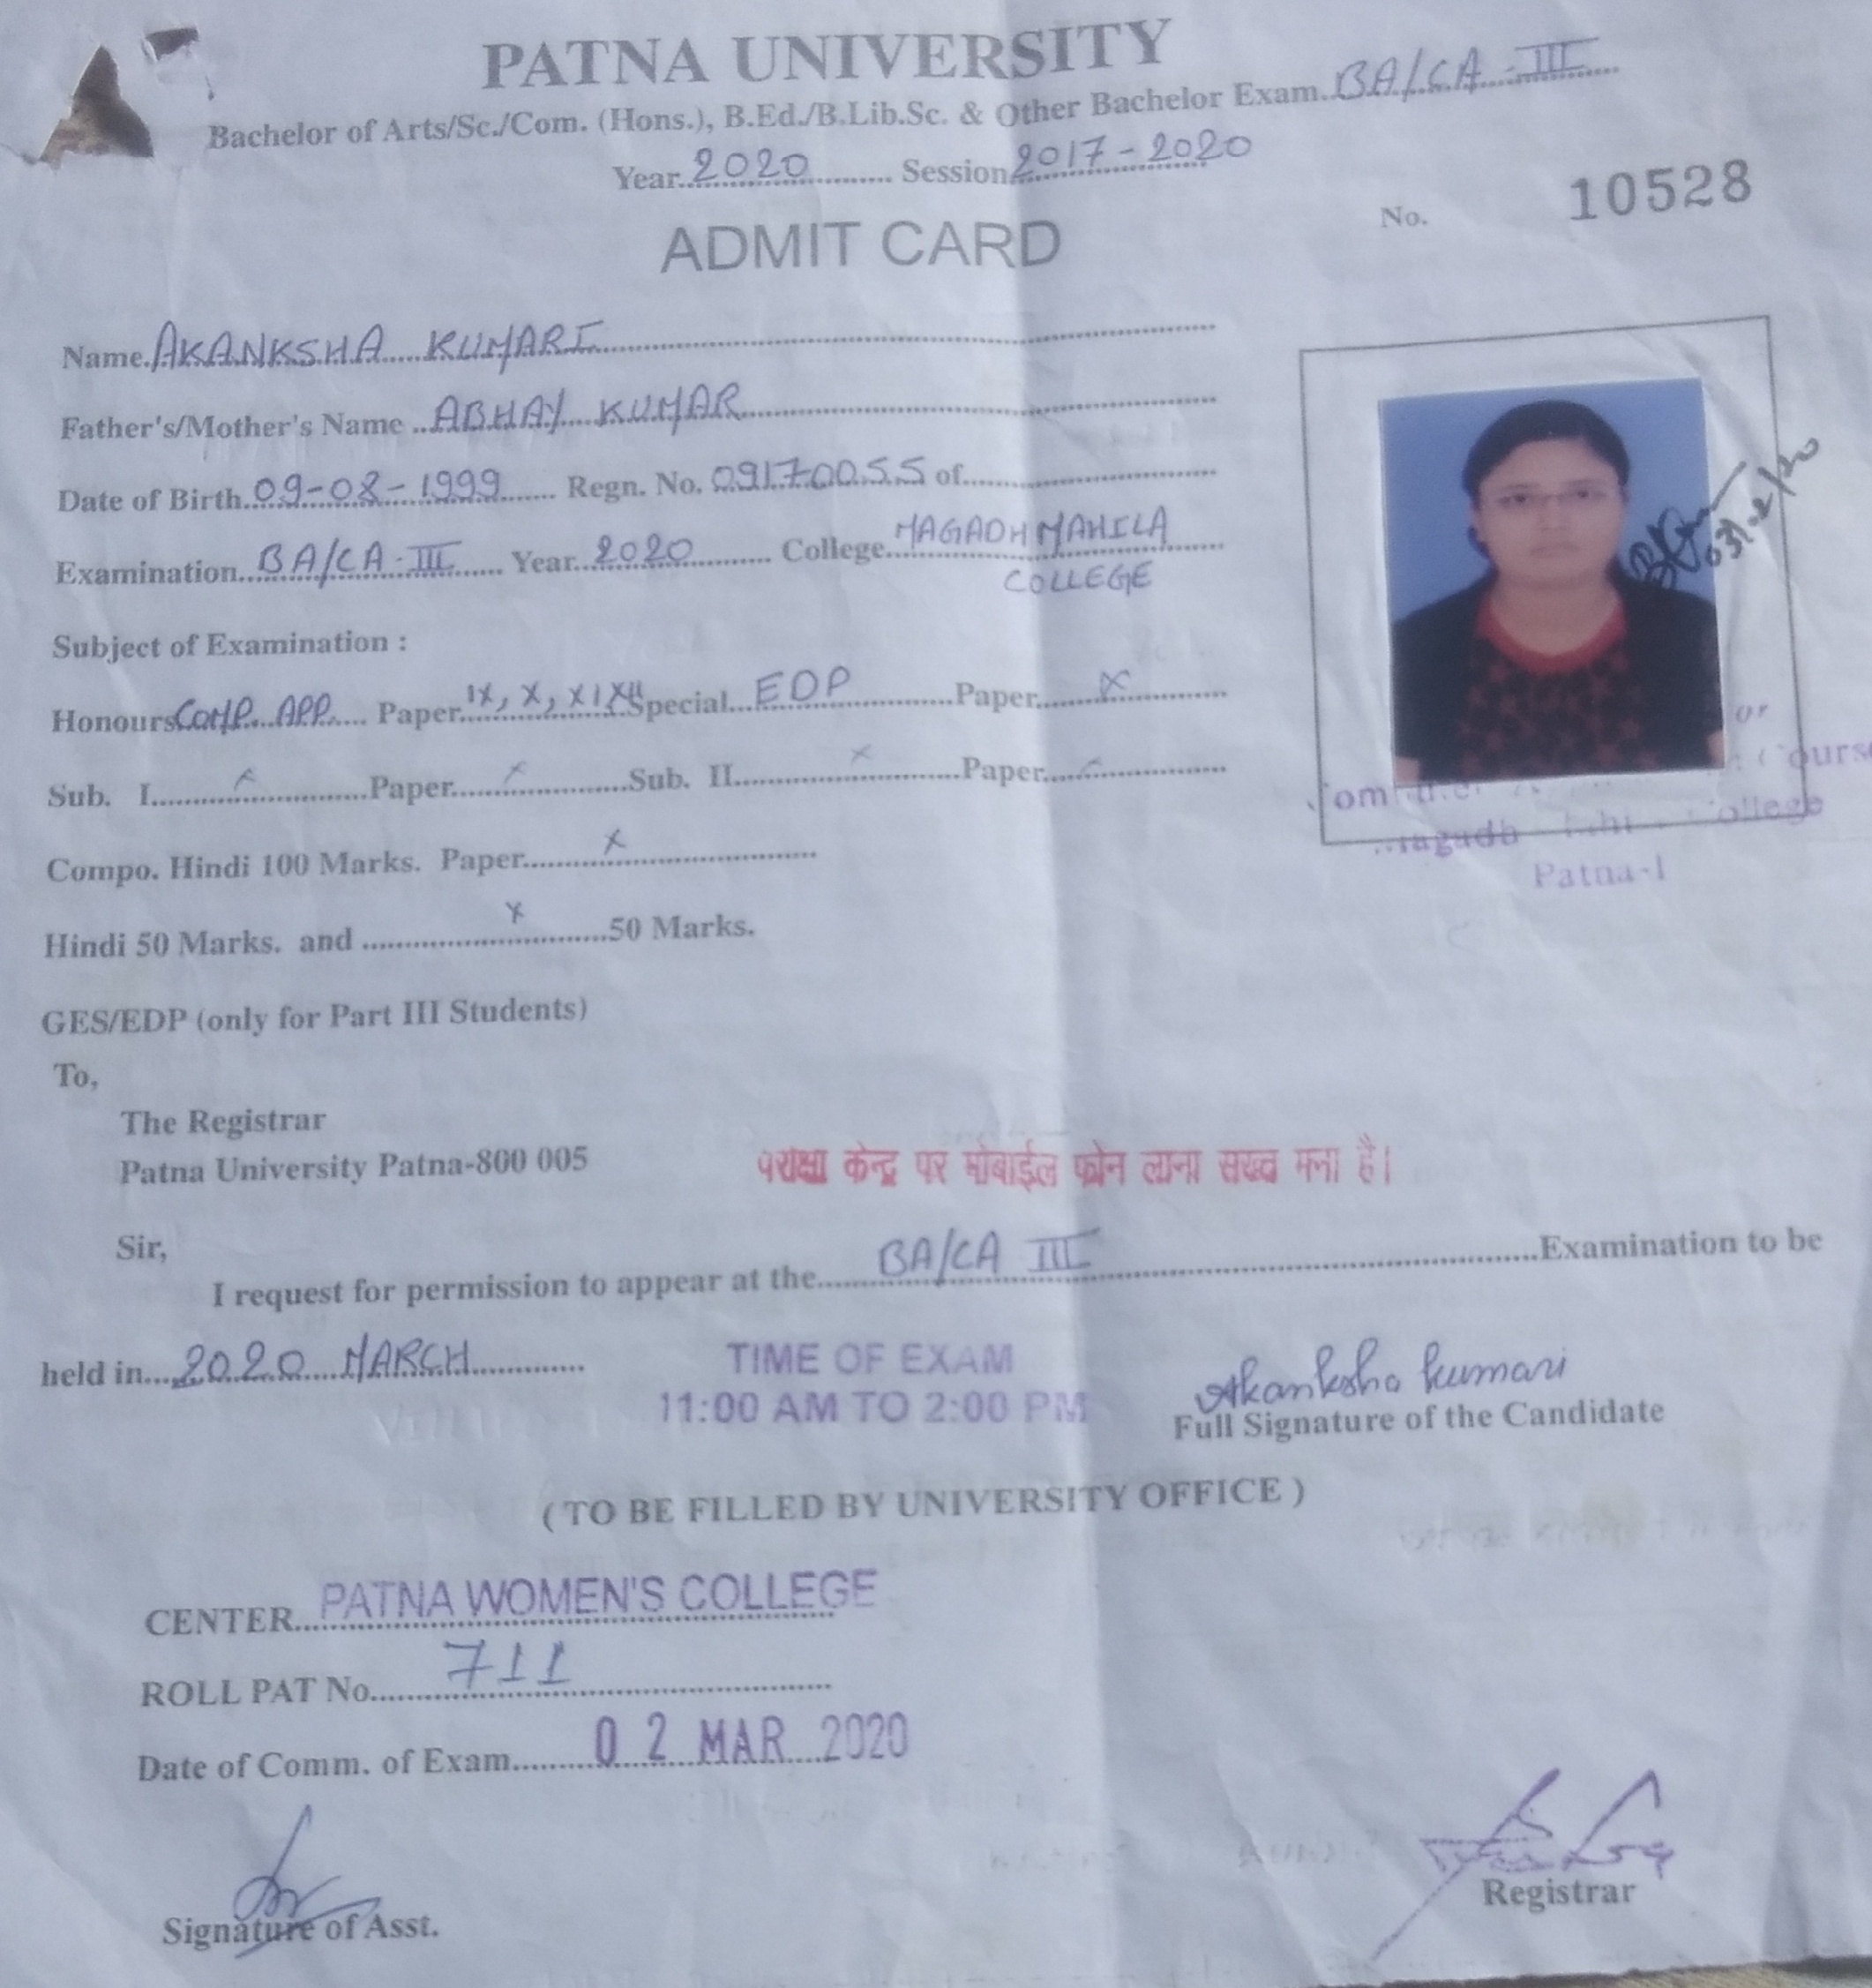 PATNA UNIVERSITY
Bachelor of Arts/Sc./Com. (Hons.), B.Ed./B.Lib.Sc. & Other Bachelor Exam. BA/CA - III
Year 2020 Session 2017 - 2020
No. 10528
ADMIT CARD
Name. AKANKSHA KUMARI
Father's/Mother's Name ABHAY KUMAR
Date of Birth 09-08-1999 Regn. No. 09170055 of
Examination BA/CA - III Year 2020 College MAGADH MAHILA
COLLEGE
Subject of Examination :
Honours COMP. APP. Paper IX, X, XI XII Special EDP Paper X
Sub. I X Paper X Sub. II X Paper
Compo. Hindi 100 Marks. Paper X
Hindi 50 Marks. and X 50 Marks.
03/02/20
Patna-1
GES/EDP (only for Part III Students)
To,
The Registrar
Patna University Patna-800 005
परीक्षा केन्द्र पर मोबाईल फोन लाना सख्त मना है।
Sir,
I request for permission to appear at the BA/CA III Examination to be
held in 2020 MARCH
TIME OF EXAM
11:00 AM TO 2:00 PM
Akanksha kumari
Full Signature of the Candidate
( TO BE FILLED BY UNIVERSITY OFFICE )
CENTER PATNA WOMEN'S COLLEGE
ROLL PAT No. 711
Date of Comm. of Exam 02 MAR 2020
Signature of Asst.
Registrar